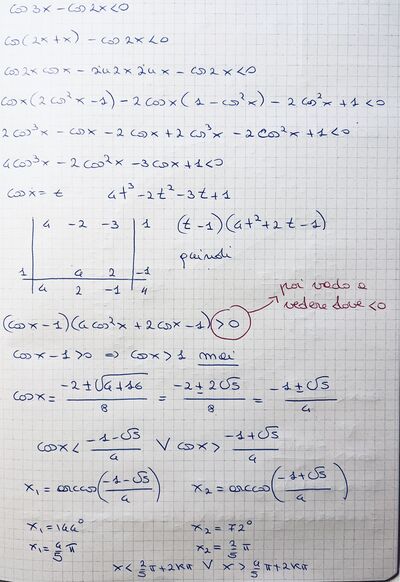 cos3x - cos2x < 0
cos(2x+x) - cos2x < 0
cos2x cosx - sin2x sinx - cos2x < 0
cosx(2cos²x-1) - 2cosx(1-cos²x) - 2cos²x+1 < 0
2cos³x - cosx - 2cosx + 2cos³x - 2cos²x + 1 < 0
4cos³x - 2cos²x - 3cosx + 1 < 0
cosx = t 4t³-2t²-3t+1
4 -2 -3 1 (t-1)(4t²+2t-1)
quindi
1 4 2 -1
4 2 -1 4
poi vado a
vedere dove <0
(cosx-1)(4cos²x+2cosx-1) > 0
cosx-1>0 ⇒ cosx>1 mai
cosx = (-2±√(4+16))/8 = (-2±2√5)/8 = (-1±√5)/4
cosx < (-1-√5)/4 V cosx > (-1+√5)/4
x₁ = arccos((-1-√5)/4) x₂ = arccos((-1+√5)/4)
x₁ = 144° x₂ = 72°
x₁ = 4/5 π x₂ = 2/5 π
x < 2/5 π + 2kπ V x > 4/5 π + 2kπ